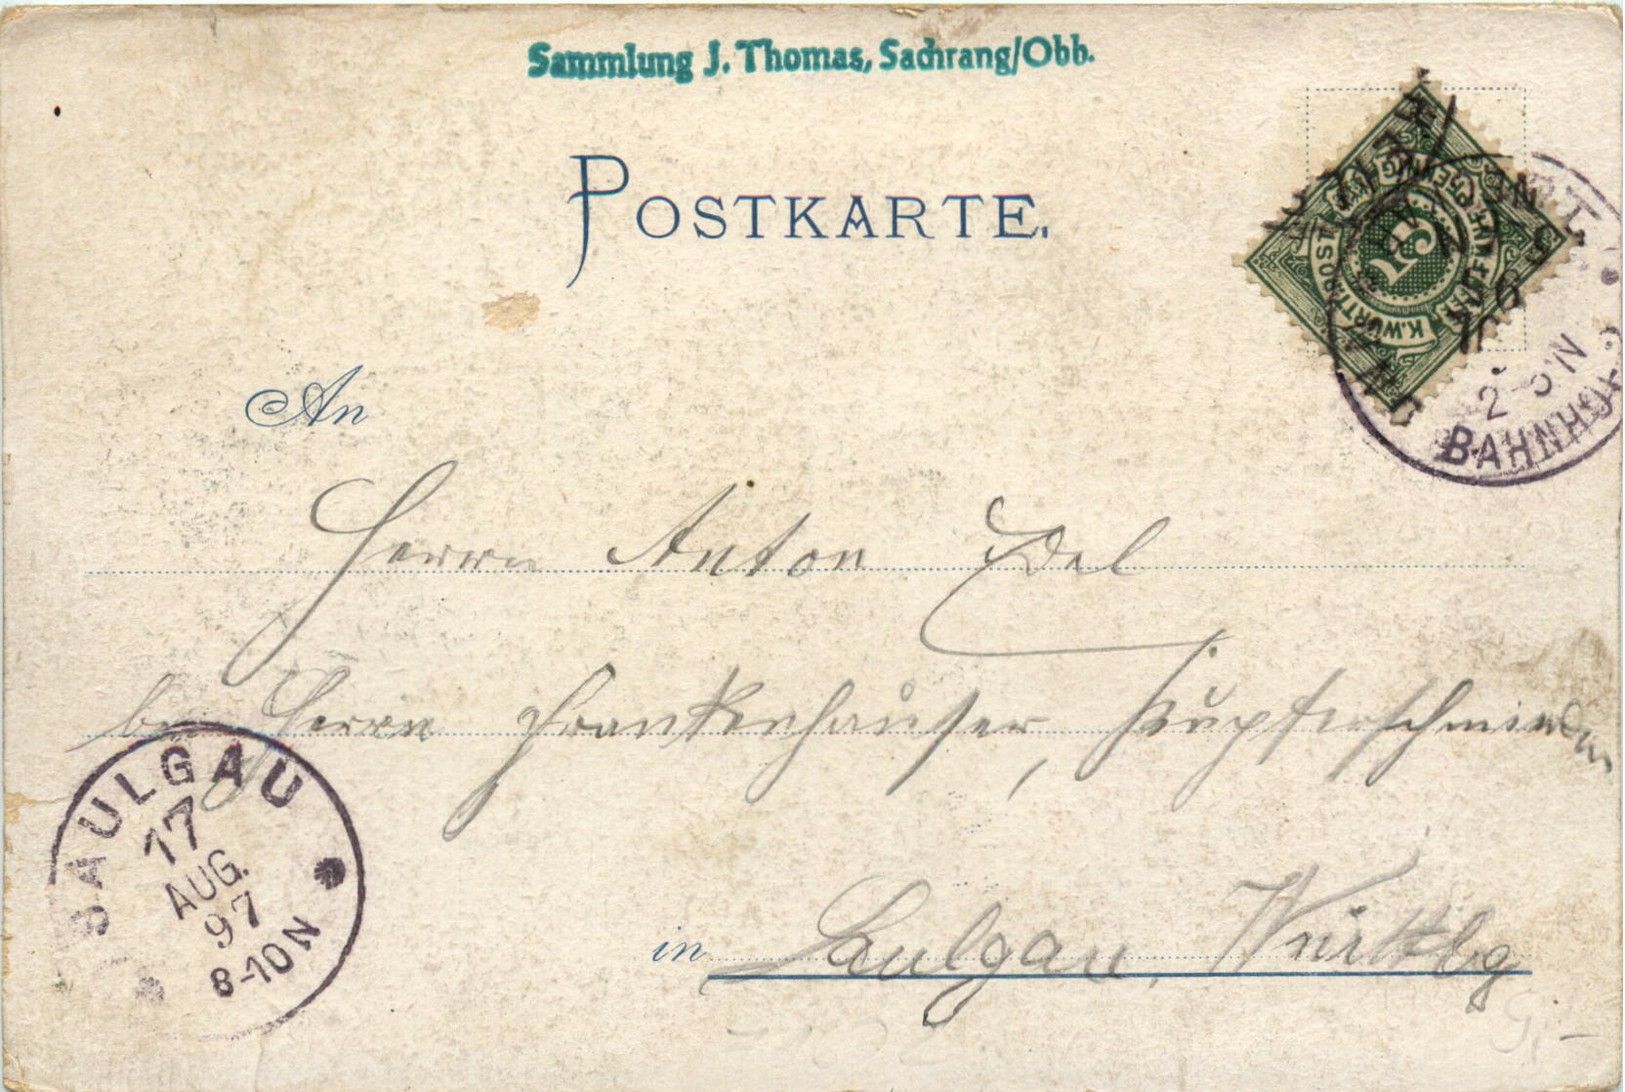 Sammlung J. Thomas, Sachrang/Obb.
POSTKARTE.
K. WÜRTT. POST
5
2-3 N
BAHNHOF
An
Herrn Anton Edel
bei Herrn Frankenhauser, Kupferschmied
in Saulgau, Württbg
SAULGAU
17
AUG.
97
8-10 N